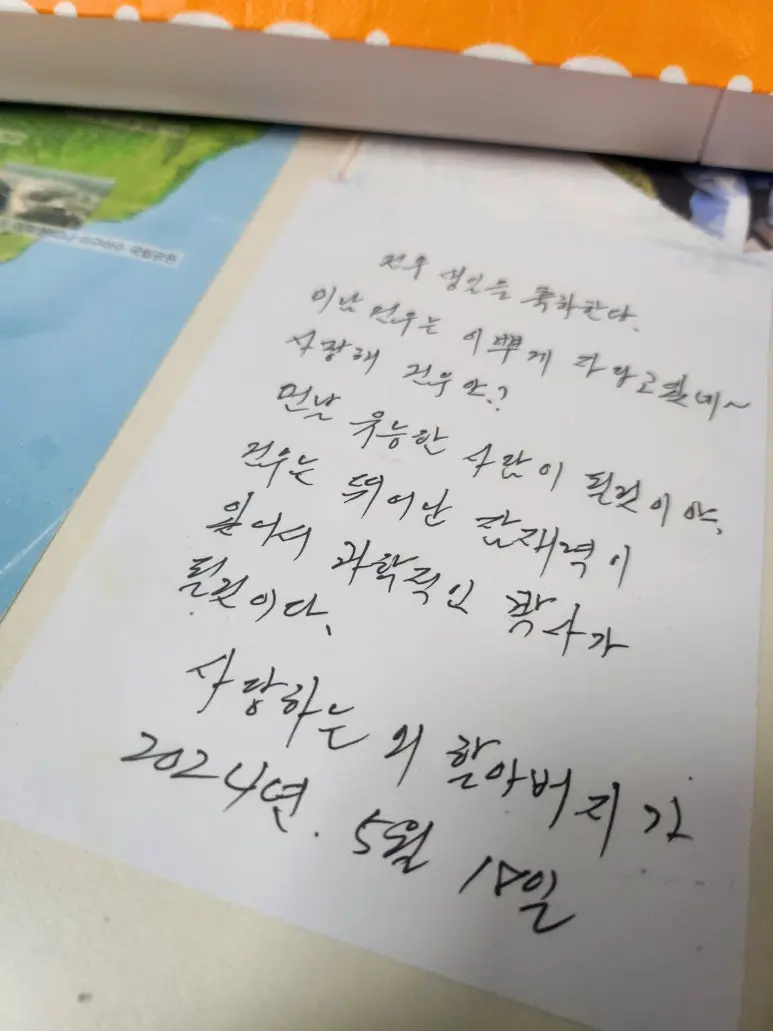 건우 생일을 축하한다.
이날 건우는 이쁘게 자라고 있네~
사랑해 건우야?
먼날 유능한 사람이 될것이야.
건우는 뛰어난 잠재력이
있어서 과학적인 박사가
될것이다.
사랑하는 외 할아버지가
2024년. 5월 18일
국립공원